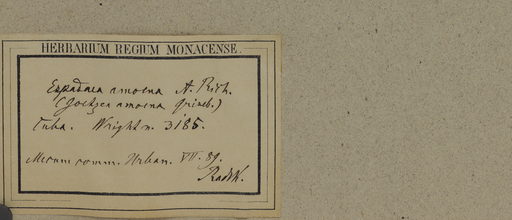 HERBARIUM REGIUM MONACENSE.
Espadaea amoena A. Rich.
(Goetzea amoena Griseb.)
Cuba. Wright n. 3185.
Mecum comm. Urban. VII. 89.
Radlk.